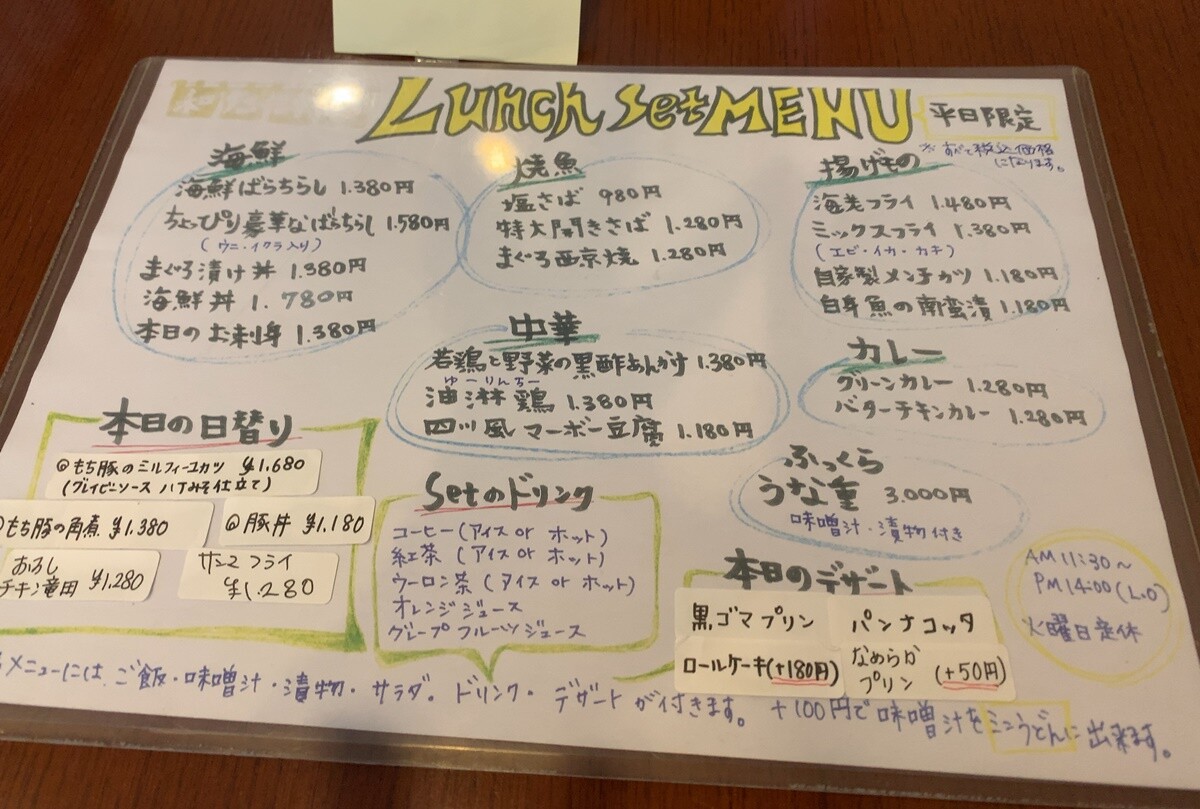 Lunch Set MENU
平日限定
※すべて税込価格
になります。
海鮮
海鮮ばらちらし 1.380円
ちょっぴり豪華なばらちらし 1.580円
(ウニ・イクラ入り)
まぐろ漬け丼 1.380円
海鮮丼 1.780円
本日のお刺身 1.380円
焼魚
塩さば 980円
特大開きさば 1.280円
まぐろ西京焼 1.280円
揚げもの
海老フライ 1.480円
ミックスフライ 1.380円
(エビ・イカ・カキ)
自家製メンチカツ 1.180円
白身魚の南蛮漬 1.180円
中華
若鶏と野菜の黒酢あんかけ 1.380円
ゆーりんちー
油淋鶏 1.380円
四川風マーボー豆腐 1.180円
カレー
グリーンカレー 1.280円
バターチキンカレー 1.280円
ふっくら
うな重 3.000円
味噌汁・漬物付き
本日の日替り
◎もち豚のミルフィーユカツ ¥1.680
(グレイビーソース 八丁みそ仕立て)
もち豚の角煮 ¥1.380
◎豚丼 ¥1.180
おろし
チキン竜田 ¥1.280
サンマフライ
¥1.280
Setのドリンク
コーヒー(アイス or ホット)
紅茶(アイス or ホット)
ウーロン茶(アイス or ホット)
オレンジジュース
グレープフルーツジュース
本日のデザート
黒ゴマプリン
パンナコッタ
ロールケーキ(+180円)
なめらか
プリン (+50円)
AM 11:30~
PM 14:00 (L.O)
火曜日定休
メニューには、ご飯・味噌汁・漬物・サラダ。ドリンク・デザートが付きます。 +100円で味噌汁をミニうどんに出来ます。